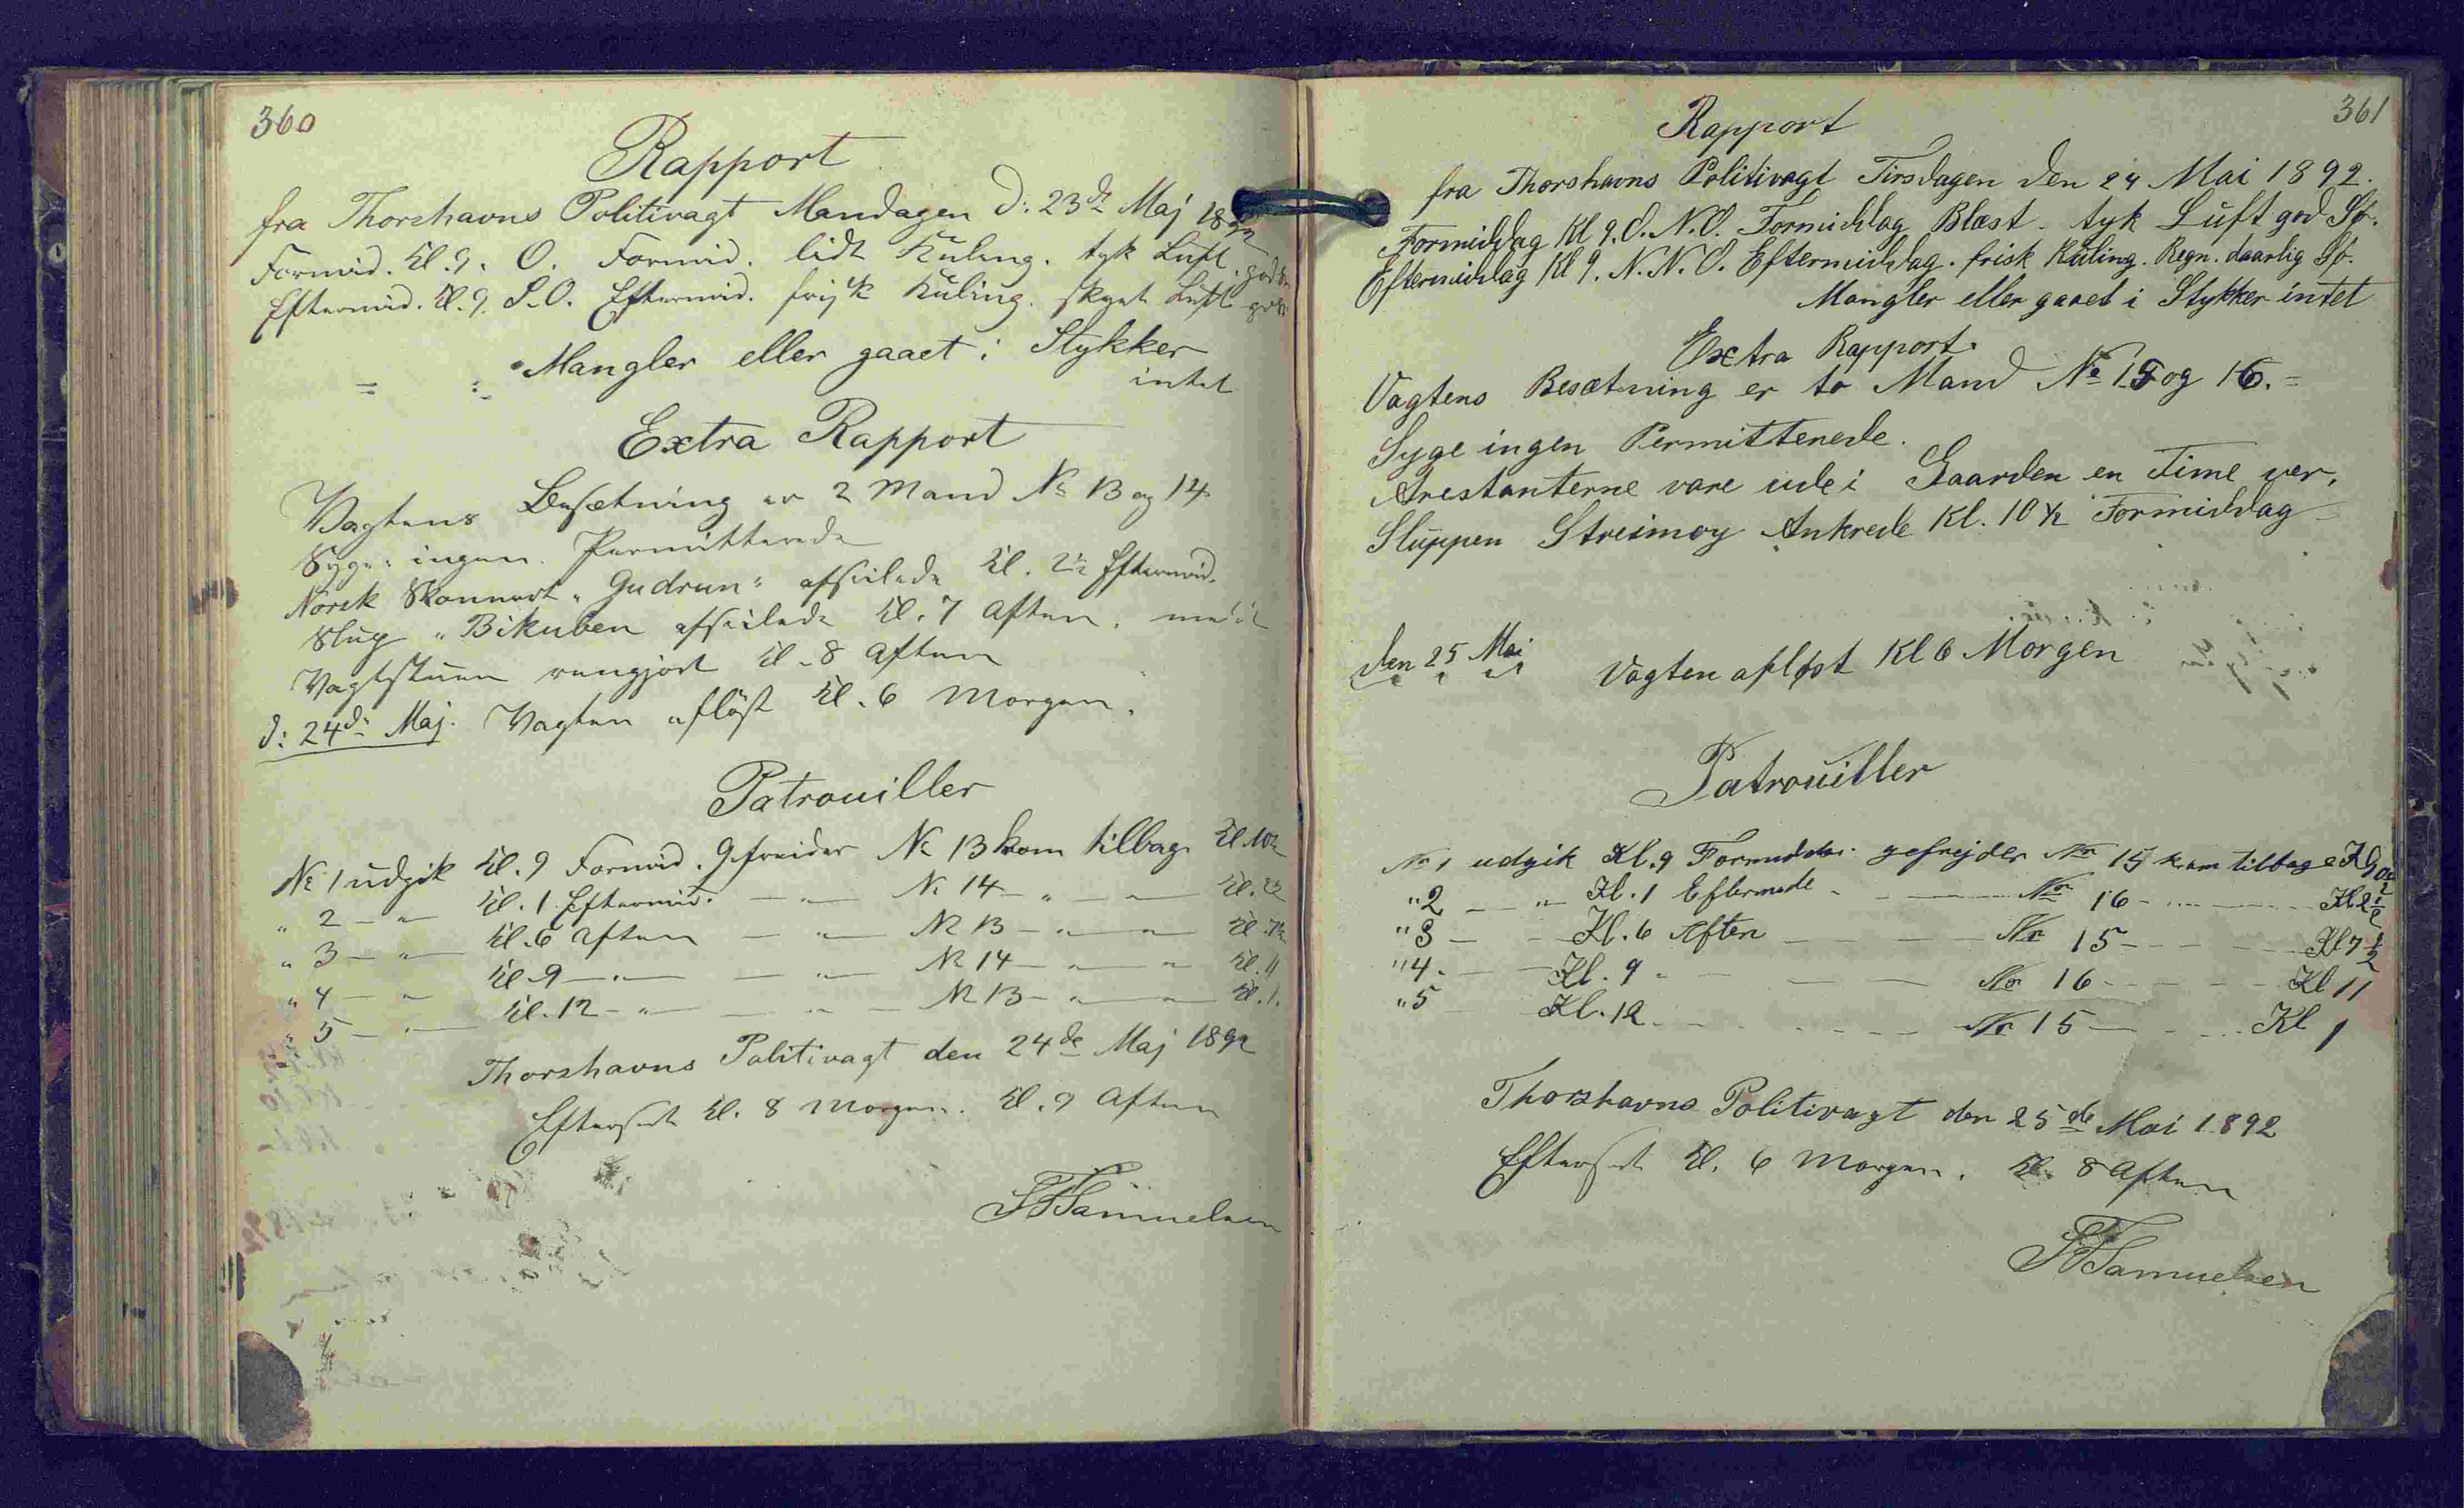 360
Rapport
fra Thorshavns Politivagt Mandagen d: 23de Maj 1892
Formid. Kl. 9. O. Formid. lidt Kuling. tyk Luft. god
Eftermid. Kl. 9. S.O. Eftermid. frisk Kuling. skyet Luft
Mangler eller gaaet i Stykker
intet
Extra Rapport
Vagtens Besætning er 2 Mand No 13 og 14
Syge: ingen. Permitterede
Norsk Skonnert "Gudrun" afseilede Kl. 2½ Eftermid.
Slup "Bikuben afseilede Kl. 7 Aften.
Vagtstuen rengjort Kl. 8 Aften
d: 24de Maj. Vagten afløst Kl. 6 Morgen.
Patrouiller
No 1 udgik Kl. 9 Formid. Gefreider No 13 kom tilbage Kl 10½
" 2 — " Kl. 1 Eftermid. — " — No 14 — " — " — Kl. 2½
" 3 — " — Kl. 6 Aften — " — No 13 — " — " Kl. 7½
" 4 — " Kl 9 — " — — " — No 14 — " — " Kl. 11
" 5 — " — Kl. 12 — " — — " — No 13 — " — " Kl. 1.
Thorshavns Politivagt den 24de Maj 1892
Efterseet Kl. 8 Morgen. Kl. 9 Aften
Samuelsen
361
Rapport
fra Thorshavns Politivagt Tirsdagen den 24 Mai 1892.
Formiddag Kl 9. O.N.O. Formiddag Blæst. tyk Luft god Sø.
Eftermiddag Kl 9. N.N.O. Eftermiddag. frisk Kuling. Regn. daarlig Sø.
Mangler eller gaaet i Stykker intet
Extra Rapport.
Vagtens Besætning er to Mand No 15 og 16. =
Syge ingen Permitterede.
Arestanterne vare ude i Gaarden en Time
Sluppen Streimoy Ankrede Kl. 10½ Formiddag
den 25 Mai Vagten afløst Kl 6 Morgen
Patrouiller
No 1 udgik Kl. 9 Formidd. gefrejder No 15 kom tilbage Kl 10½
"2 — " — Kl. 1 Eftermidd - — No 16 - — Kl 2½
"3 — - Kl. 6 Aften — — No 15 - — Kl 7½
"4. — Kl. 9 - — — No 16 - — Kl 11
"5 — Kl. 12. — — No 15 — — Kl 1
Thorshavns Politivagt den 25de Mai 1892
Efterseet Kl. 6 Morgen. Kl. 8 Aften
Samuelsen